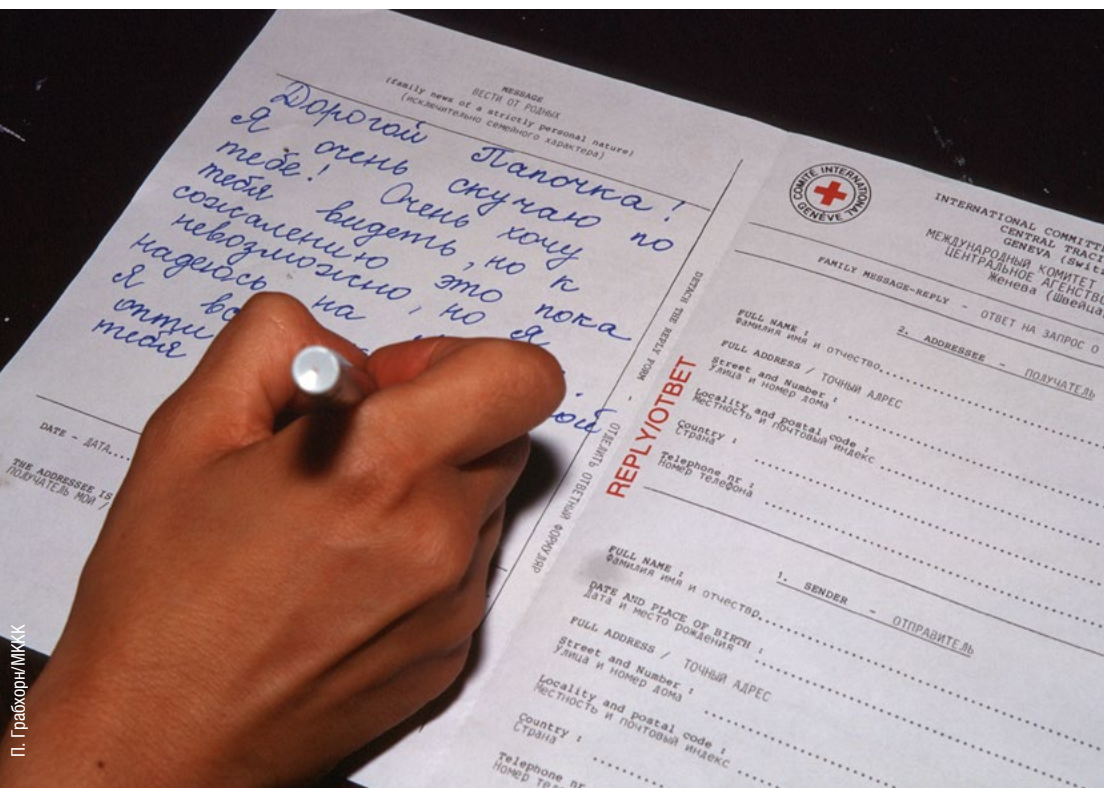 MESSAGE
ВЕСТИ ОТ РОДНЫХ
(family news of a strictly personal nature)
(исключительно семейного характера)
Дорогой Папочка!
Я очень скучаю по
тебе! Очень хочу
тебя видеть, но к
сожалению это пока
невозможно, но я
надеюсь на
Я
тебя
DATE - ДАТА
THE ADDRESSEE IS
ПОЛУЧАТЕЛЬ МОЙ /
DETACH THE REPLY FORM - ОТДЕЛИТЬ ОТВЕТНЫЙ ФОРМУЛЯР
REPLY/ОТВЕТ
COMITÉ INTERNATIONAL
GENÈVE
INTERNATIONAL
CENTRAL
GENEVA
МЕЖДУНАРОДНЫЙ КОМИТЕТ
ЦЕНТРАЛЬНОЕ
Женева
FAMILY MESSAGE-REPLY - ОТВЕТ НА ЗАПРОС О
2. ADDRESSEE - ПОЛУЧАТЕЛЬ
FULL NAME :
Фамилия имя и отчество
FULL ADDRESS / ТОЧНЫЙ АДРЕС
Street and Number :
Улица и номер дома
Locality and postal code :
Местность и почтовый индекс
Country :
Страна
Telephone nr :
Номер телефона
1. SENDER - ОТПРАВИТЕЛЬ
FULL NAME :
Фамилия имя и отчество
DATE AND PLACE OF BIRTH :
Дата и место рождения
FULL ADDRESS / ТОЧНЫЙ АДРЕС
Street and Number :
Улица и номер дома
Locality and postal code :
Местность и почтовый индекс
Country :
Страна
Telephone nr
Номер
П. Грабхорн/МККК